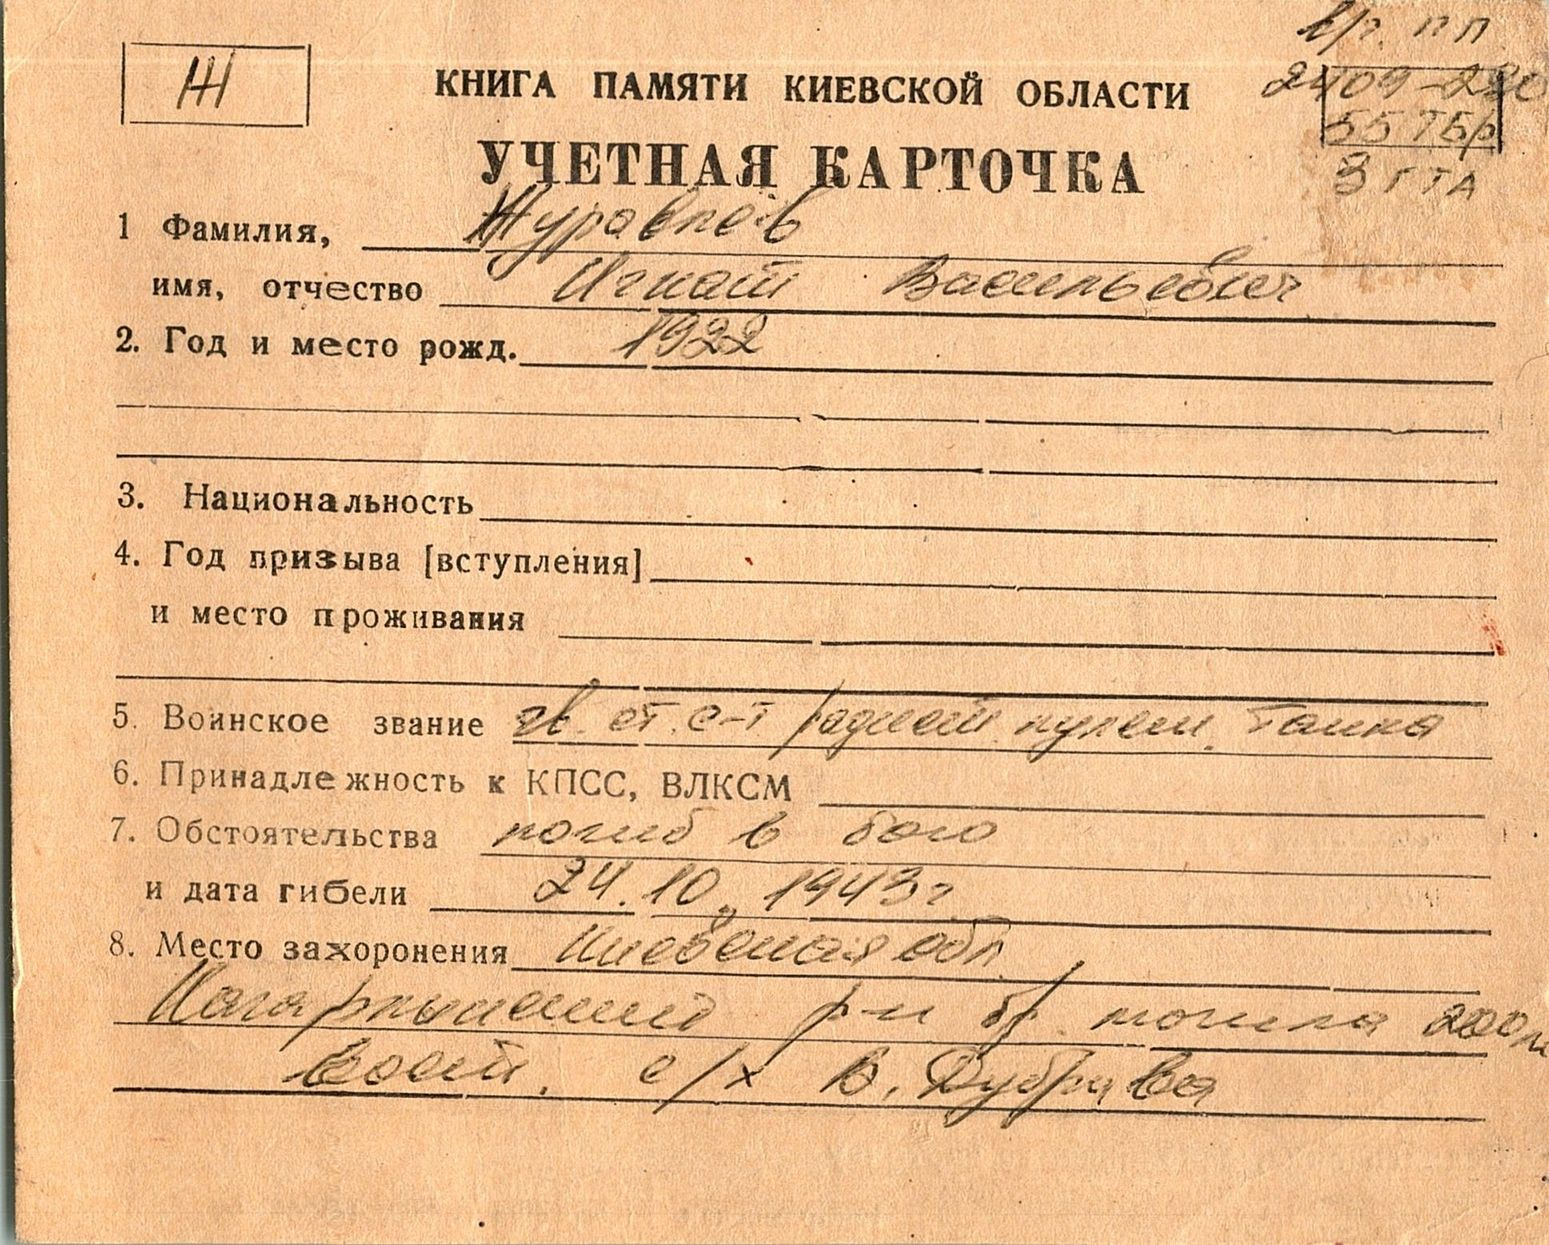 Ж
в/ч. пп
КНИГА ПАМЯТИ КИЕВСКОЙ ОБЛАСТИ
55 ТБр
УЧЕТНАЯ КАРТОЧКА
3 ГТА
1 Фамилия, Журавлев
имя, отчество Игнат Васильевич
2. Год и место рожд. 1922
3. Национальность
4. Год призыва [вступления]
и место проживания
5. Воинское звание гв. ст. с-т радист. пулем. танка
6. Принадлежность к КПСС, ВЛКСМ
7. Обстоятельства погиб в бою
и дата гибели 24.10.1943г
8. Место захоронения Киевская обл.
Кагарлыкский р-н бр. могила 200м
вост. с/х В. Дубрава